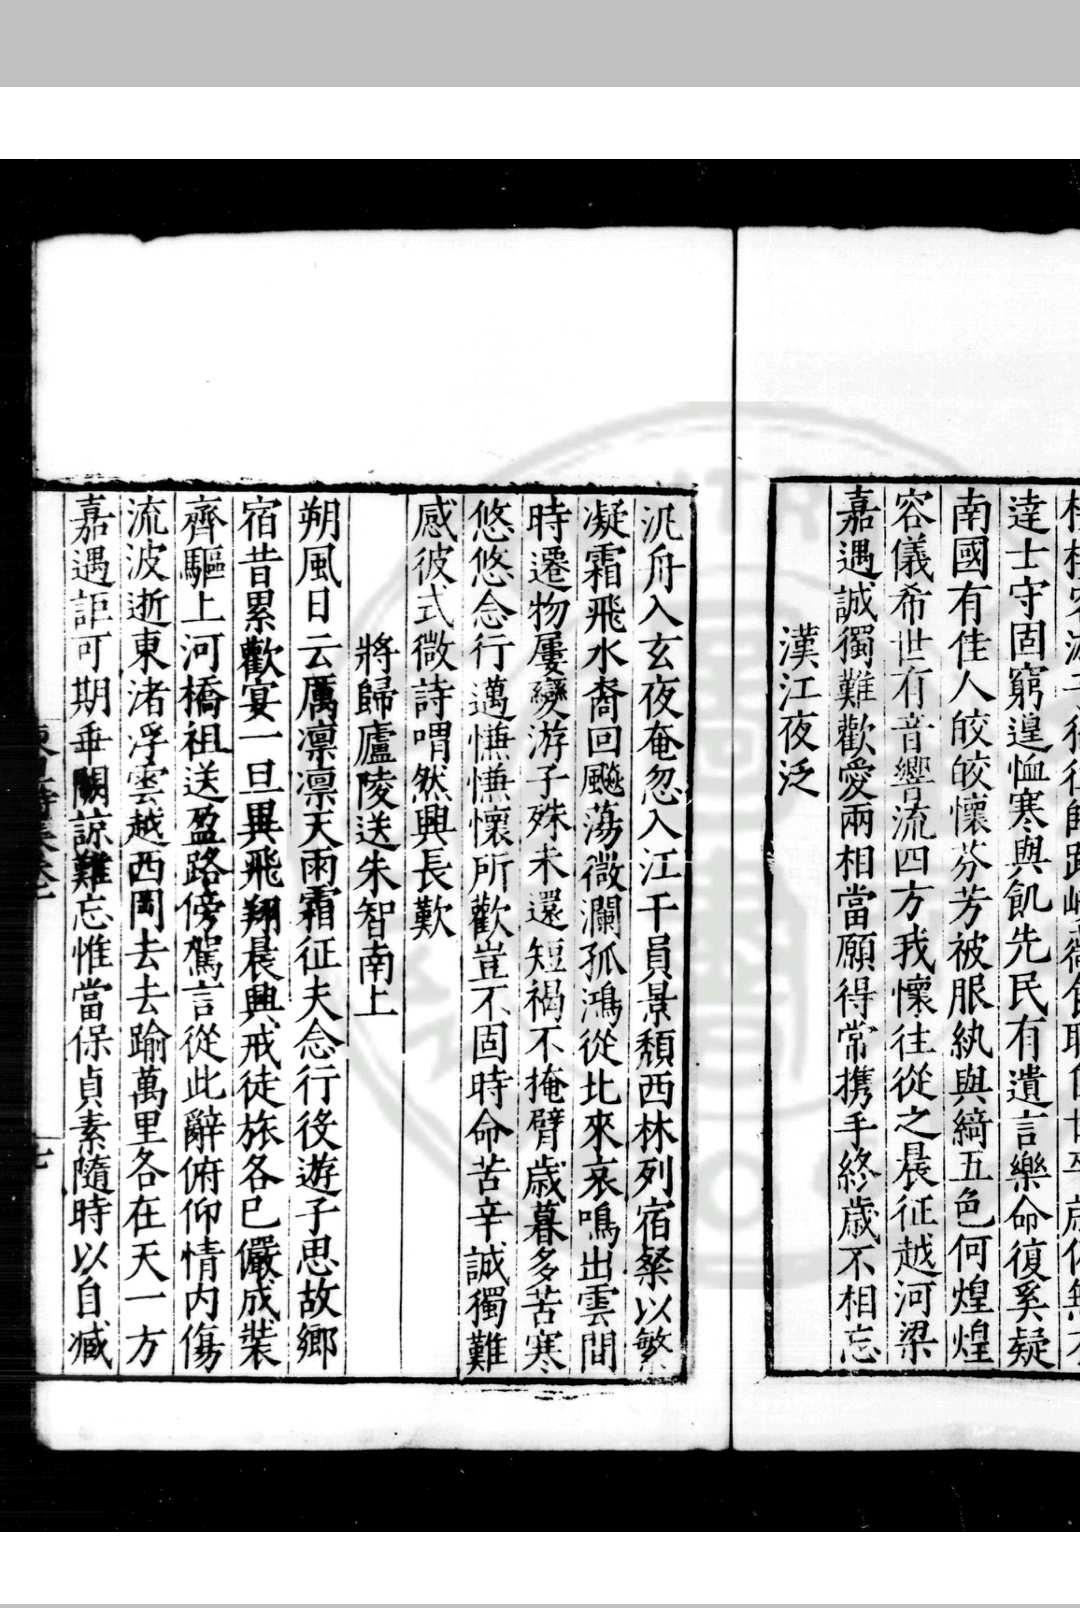 達士守固窮遑恤寒與飢先民有遺言樂命復奚疑
南國有佳人皎皎懷芬芳被服紈與綺五色何煌煌
容儀希世有音響流四方我懷往從之晨征越河梁
嘉遇誠獨難歡愛兩相當願得常携手終歲不相忘
漢江夜泛
泛舟入玄夜奄忽入江干員景頹西林列宿粲以繁
凝霜飛水裔回飈蕩微瀾孤鴻從北來哀鳴出雲間
時遷物屢變游子殊未還短褐不掩臂歲暮多苦寒
悠悠念行邁憮憮懷所歡豈不固時命苦辛誠獨難
感彼式微詩喟然興長歎
將歸廬陵送朱智南上
朔風日云厲凛凛天雨霜征夫念行役遊子思故鄉
宿昔累歡宴一旦異飛翔晨興戒徒旅各已儼成裝
齊驅上河橋祖送盈路傍駕言從此辭俯仰情內傷
流波逝東渚浮雲越西岡去去踰萬里各在天一方
嘉遇詎可期乖闊諒難忘惟當保貞素隨時以自臧
七